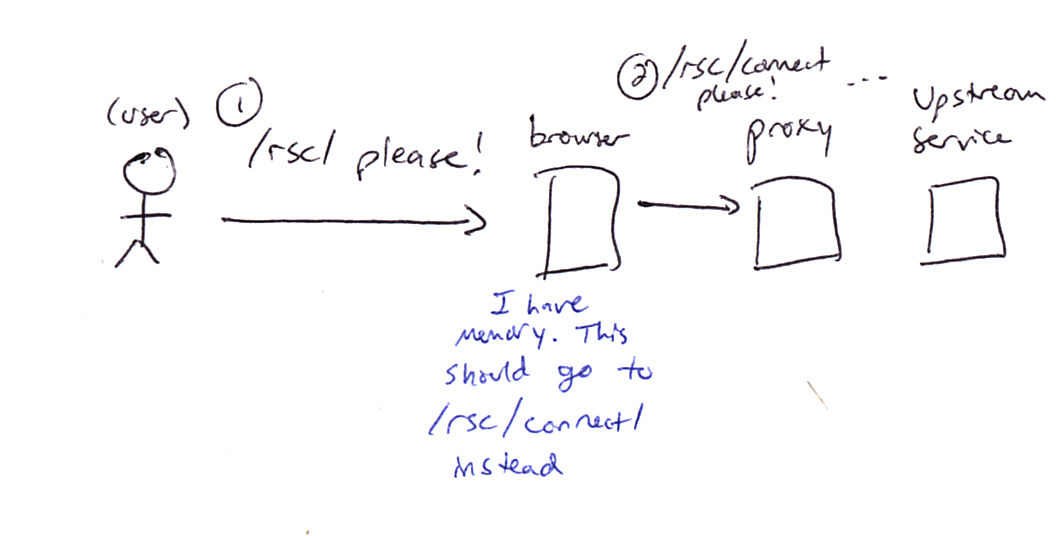 (user)
①
/rsc/ please!
browser
② /rsc/connect
please!
...
proxy
Upstream
service
I have
memory. This
should go to
/rsc/connect/
instead